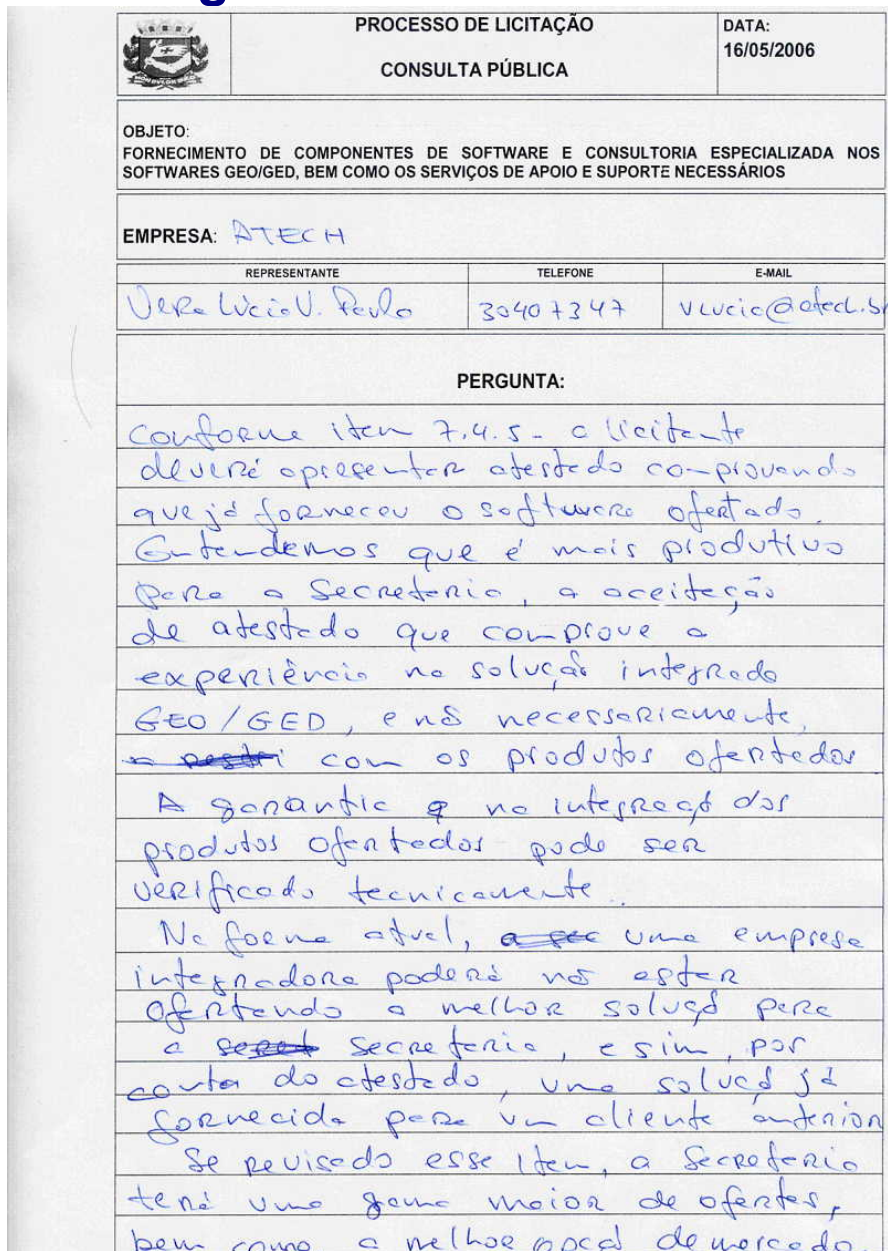 PROCESSO DE LICITAÇÃO
CONSULTA PÚBLICA
DATA:
16/05/2006
OBJETO:
FORNECIMENTO DE COMPONENTES DE SOFTWARE E CONSULTORIA ESPECIALIZADA NOS
SOFTWARES GEO/GED, BEM COMO OS SERVIÇOS DE APOIO E SUPORTE NECESSÁRIOS
EMPRESA: ATECH
REPRESENTANTE
TELEFONE
E-MAIL
Vera Lúcia V. Paulo
30407347
vlucia@atech.br
PERGUNTA:
Conforme item 7.4.5 - a licitante
deverá apresentar atestado comprovando
que já forneceu o software ofertado.
Entendemos que é mais produtivo
para a Secretaria, a aceitação
de atestado que comprove a
experiência na solução integrada
GEO/GED, e não necessariamente,
com os produtos ofertados
A garantia na integração dos
produtos ofertados pode ser
verificado tecnicamente.
Na forma atual, uma empresa
integradora poderá não estar
ofertando a melhor solução para
a Secretaria, e sim, por
conta do atestado, uma solução já
fornecida para um cliente anterior
Se revisado esse item, a Secretaria
terá uma gama maior de ofertas,
bem como a melhor opção de mercado.